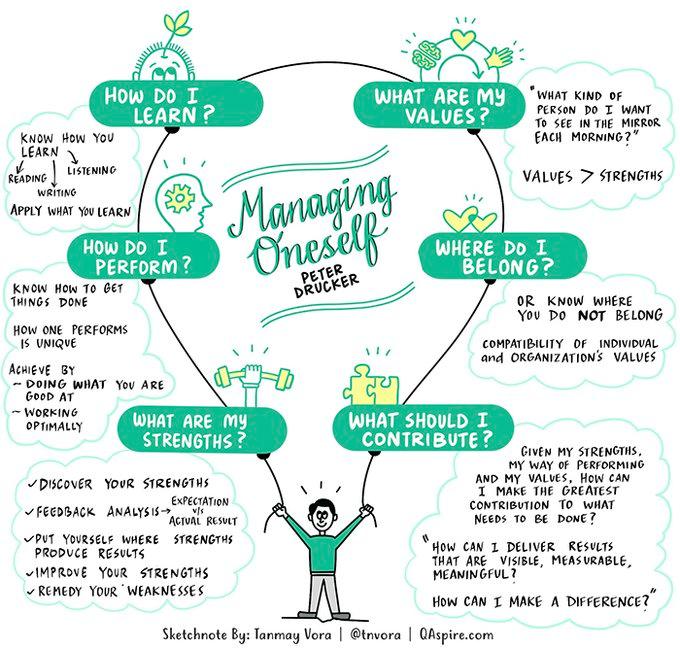 HOW DO I
LEARN?
KNOW HOW YOU
LEARN
READING
LISTENING
WRITING
APPLY WHAT YOU LEARN
WHAT ARE MY
VALUES?
"WHAT KIND OF
PERSON DO I WANT
TO SEE IN THE MIRROR
EACH MORNING?"
VALUES > STRENGTHS
Managing
Oneself
PETER
DRUCKER
HOW DO I
PERFORM?
KNOW HOW TO GET
THINGS DONE
HOW ONE PERFORMS
IS UNIQUE
ACHIEVE BY
~ DOING WHAT YOU ARE
GOOD AT
~ WORKING
OPTIMALLY
WHERE DO I
BELONG?
OR KNOW WHERE
YOU DO NOT BELONG
COMPATIBILITY OF INDIVIDUAL
and ORGANIZATION'S VALUES
WHAT ARE MY
STRENGTHS?
✓ DISCOVER YOUR STRENGTHS
✓ FEEDBACK ANALYSIS → EXPECTATION
v/s
ACTUAL RESULT
✓ PUT YOURSELF WHERE STRENGTHS
PRODUCE RESULTS
✓ IMPROVE YOUR STRENGTHS
✓ REMEDY YOUR WEAKNESSES
WHAT SHOULD I
CONTRIBUTE?
GIVEN MY STRENGTHS,
MY WAY OF PERFORMING
AND MY VALUES, HOW CAN
I MAKE THE GREATEST
CONTRIBUTION TO WHAT
NEEDS TO BE DONE?
"HOW CAN I DELIVER RESULTS
THAT ARE VISIBLE, MEASURABLE,
MEANINGFUL?
HOW CAN I MAKE A DIFFERENCE?"
Sketchnote By: Tanmay Vora | @tnvora | QAspire.com